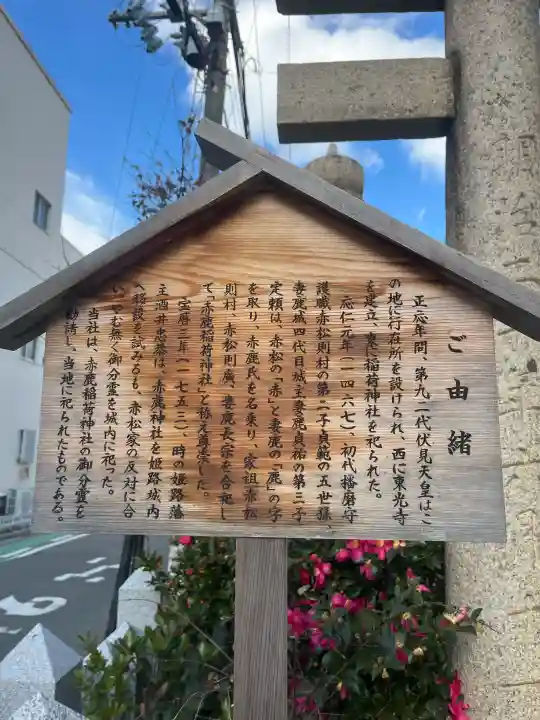 ご由緒
正応年間、第九二代伏見天皇はこ
の地に行在所を設けられ、西に東光寺
を建立、東に稲荷神社を祀られた。
応仁元年（一四六七）、初代播磨守
護職赤松則村の第二子貞範の五世孫、
妻鹿城四代目城主妻鹿貞祐の第三子
定頼は、赤松の「赤」と妻鹿の「鹿」の字
を取り、赤鹿氏を名乗り、家祖赤松
則村、赤松則廣、妻鹿長宗を合祀し
て「赤鹿稲荷神社」と称え尊崇した。
宝暦三年（一七五三）、時の姫路藩
主酒井忠恭は、赤鹿神社を姫路城内
へ移設を試みるも、赤松家の反対に合
い、やむ無く御分霊を城内に祀った。
当社は、赤鹿稲荷神社の御分霊を
勧請し、当地に祀られたものである。